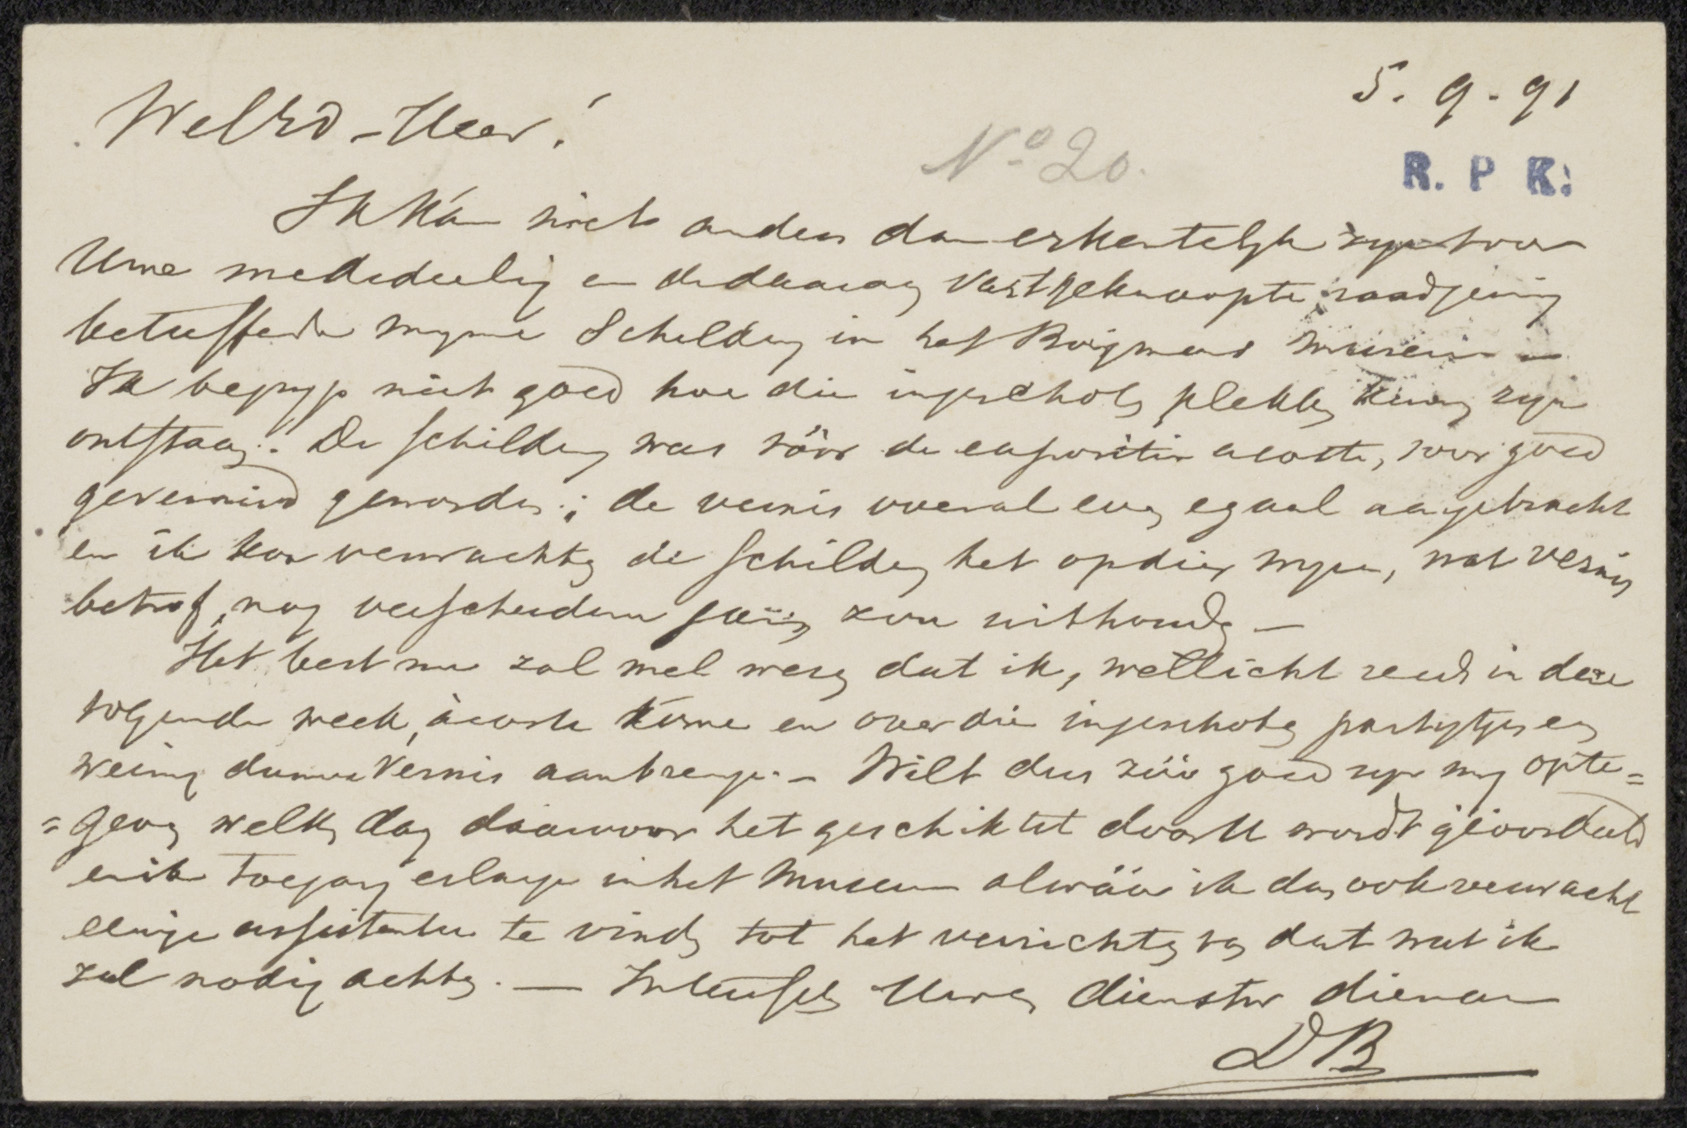 5. 9. 91
WelEd - Heer!
No 20.
R. P K.
Ik kan niet anders dan erkentelijk zijn voor
Uwe mededeeling en de daaraan vastgeknoopte raadgeving
betreffende mijne Schilderij in het Boijmans Museum -
Ik begrijp niet goed hoe die ingeschoten plekken kunnen zijn
ontstaan. De schilderij was vóór de expositie aldaar, zeer goed
gevernisd geworden; de vernis overal even egaal aangebracht
en ik kon verwachten de schilderij het opdien, wat vernis
betrof, nog verscheidene jaren zou uithouden -
Het best nu zal wel wezen dat ik, wellicht reeds in deze
volgende week, kome en over die ingeschoten partijtjes een
weinig dunne vernis aanbrenge. - Wilt dus zóó goed zijn mij opte=
=geven welken dag daarvoor het geschiktst door U wordt geoordeeld
en ik toegang erlange in het Museum alwáár ik dan ook verwacht
eenige assistentie te vinden tot het verrichten van dat wat ik
zal nodig achten. - Intusschen Uwen dienstw dienaar
DB